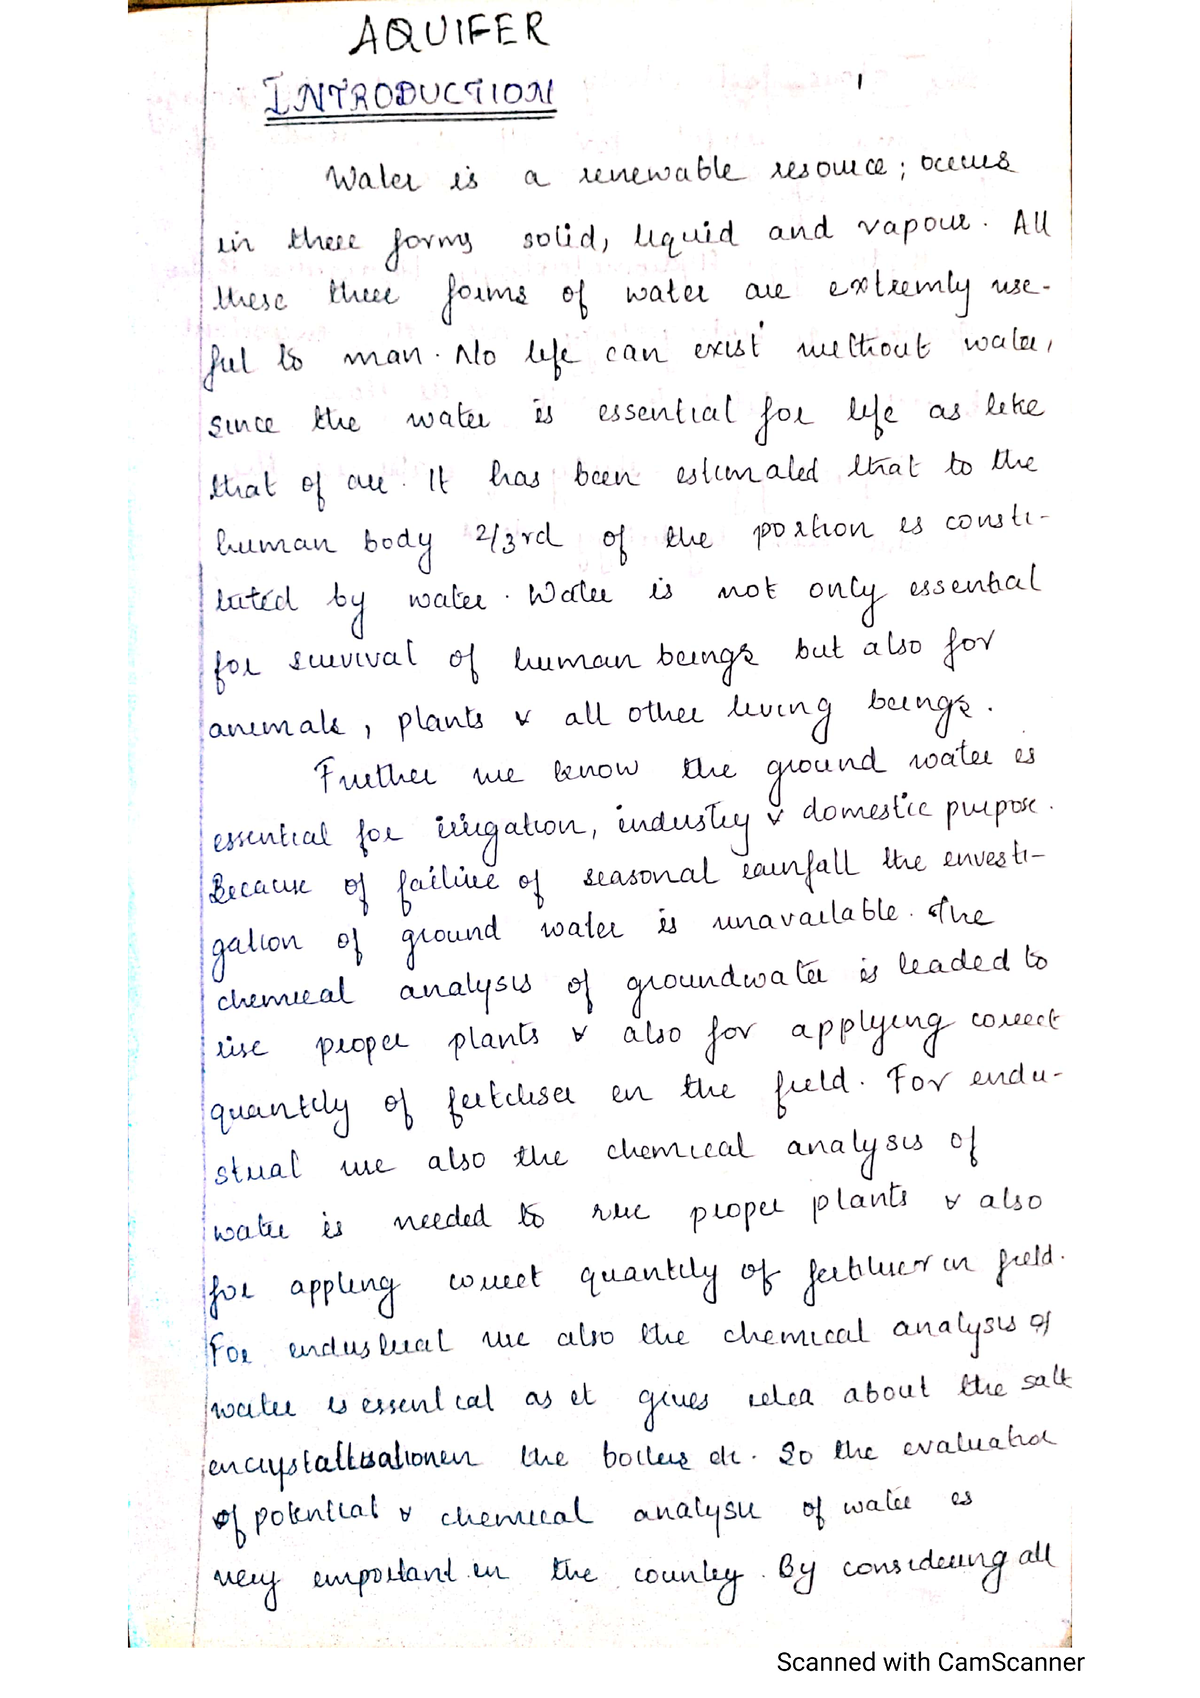 AQUIFER
INTRODUCTION 1
Water is a renewable resource; occurs
in three forms solid, liquid and vapour. All
these three forms of water are extremly use-
ful to man. No life can exist without water,
since the water is essential for life as like
that of air. It has been estimated that to the
human body 2/3rd of the portion is consti-
tuted by water. Water is not only essential
for survival of human beings but also for
animals, plants & all other living beings.
Further we know the ground water is
essential for irrigation, industry & domestic purpose.
Because of failure of seasonal rainfall the investi-
gation of ground water is unavailable. The
chemical analysis of groundwater is leaded to
rise proper plants & also for applying correct
quantity of fertiliser in the field. For indu-
strial use also the chemical analysis of
water is needed to rise proper plants & also
for appling correct quantity of fertiliser in field.
For industrial use also the chemical analysis of
water is essential as it gives idea about the salt
incrystallisationin the boilers etc. So the evaluation
of potential & chemical analysis of water is
very important in the country. By considering all
Scanned with CamScanner